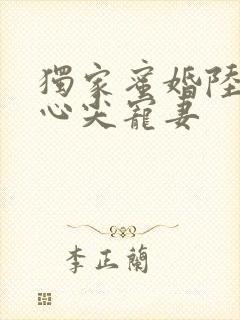 獨家蜜婚陸
心尖寵妻
李正蘭